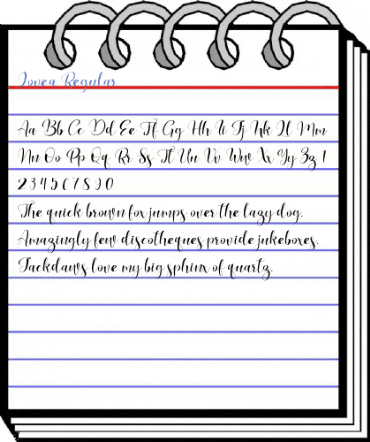 Lovea Regular
Aa Bb Cc Dd Ee Ff Gg Hh Ii Jj Kk Ll Mm
Nn Oo Pp Qq Rr Ss Tt Uu Vv Ww Xx Yy Zz 1
2 3 4 5 6 7 8 9 0
The quick brown fox jumps over the lazy dog.
Amazingly few discotheques provide jukeboxes.
Jackdaws love my big sphinx of quartz.